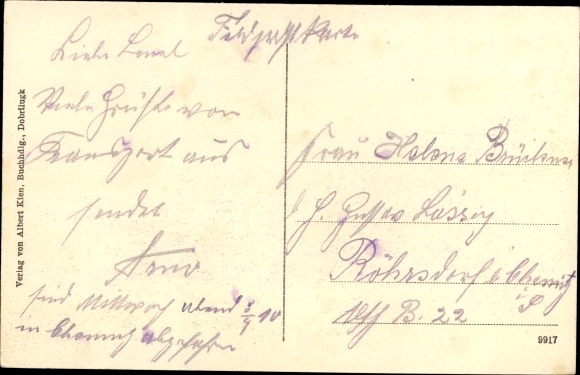 Feldpostkarte
Liebe
Viele Grüße vom
Transport aus
sendet
Arno
sind Mittwoch abend 3/4 10
in Chemnitz abgefahren
Frau Helene Brückner
b. H. Gustav
Röhrsdorf b Chemnitz
B. 22
Verlag von Albert Klen, Buchhdlg., Dobrilugk
9917